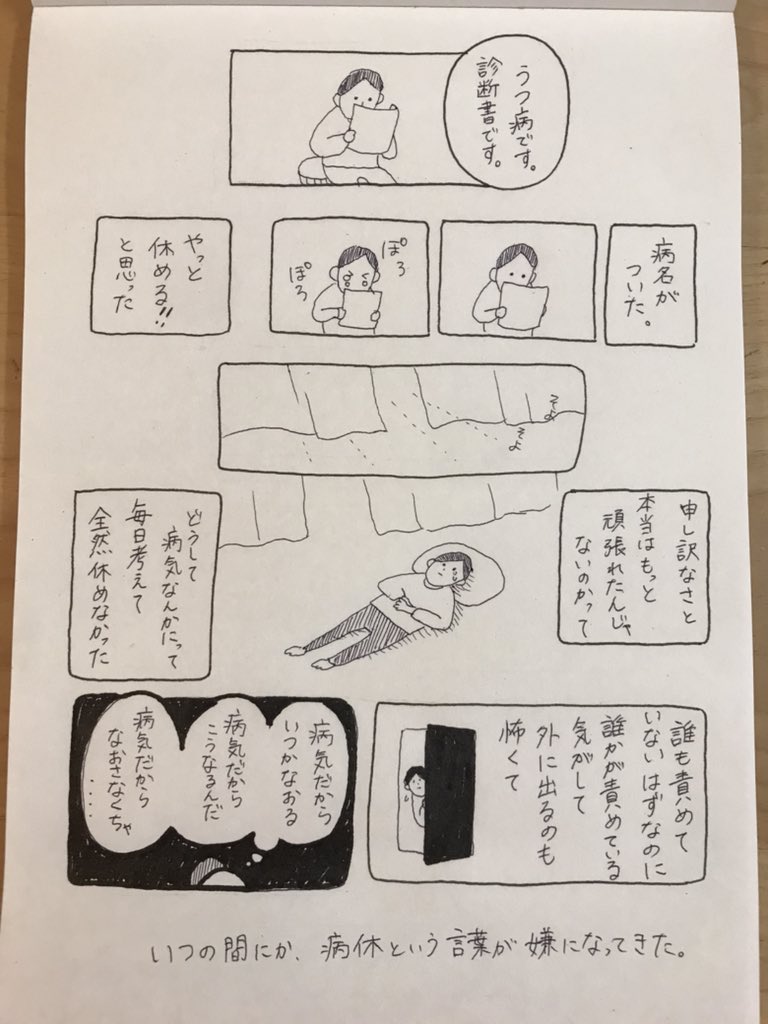 うつ病です。
診断書です。
病名が
ついた。
ぽろ
ぽろ
やっと
休める!!
と思った
そよ
そよ
申し訳なさと
本当はもっと
頑張れたんじゃ
ないのかって
どうして
病気なんかにって
毎日考えて
全然休めなかった
誰も責めて
いないはずなのに
誰かが責めている
気がして
外に出るのも
怖くて
病気だから
いつかなおる
病気だから
こうなるんだ
病気だから
なおさなくちゃ
....
いつの間にか、病休という言葉が嫌になってきた。